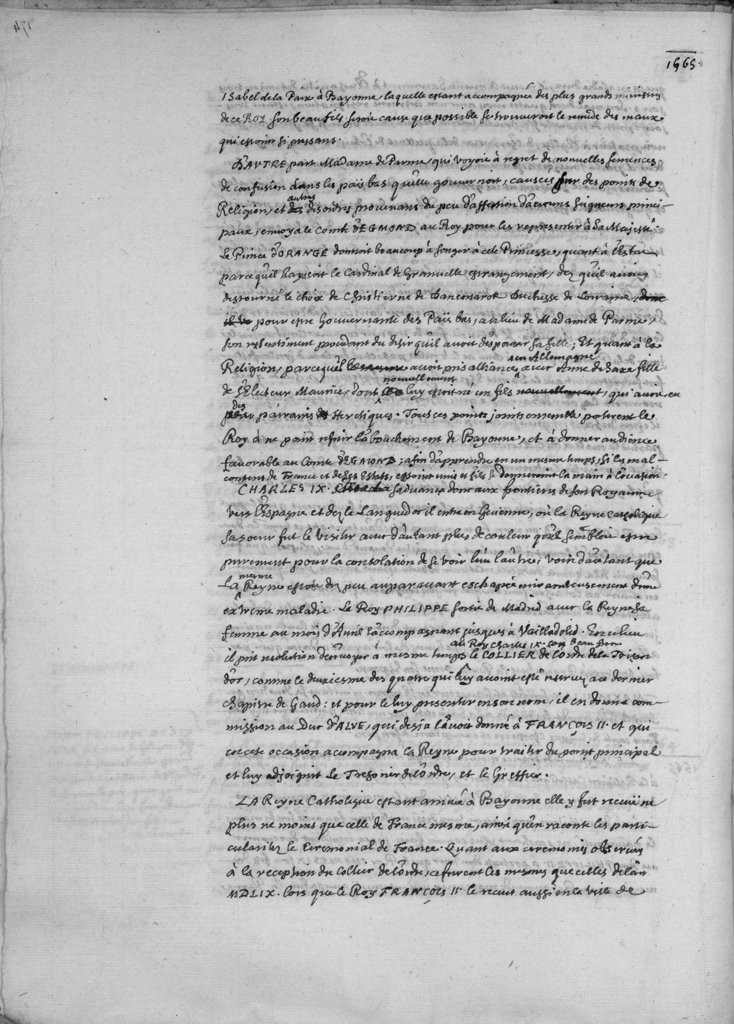 174
1565
ISabel de la Paix à Bayonne, laquelle estant acompagnée des plus grands ministres
de ce ROY son beau fils seroit cause que possible se trouveroit le remede des maux
qui estoient si pressans.
D'AUTRE part Madame de Parme, qui voyoit à regret de nouvelles semences
de confusion dans les païs bas qu'elle gouvernoit, causées sur des points de
Religion, et autres desordres provenans du peu d'affection d'aucuns seigneurs princi-
paux, envoya le Comte D'EGMOND au Roy pour les representer à sa Majesté.
Le Prince D'ORANGE donnoit beaucoup à songer à cete Princesse, quant à l'Estat
parce qu'il hayssoit le Cardinal de Granvelle estrangement, dez qu'il avoit
destourné le choix de Christierne de Danemarck Duchesse de Loraine, donc
il pour estre Gouvernante des Païs bas, au lieu de Madame de Parme,
son ressentiment procedant du desir qu'il avoit d'espouser sa fille; Et quant à la
Religion, parce qu'il avoit pris alliance en Allemagne avec Anne de Saxe fille
de l'Electeur Maurice, dont luy estoit né un fils nouvellement nouvellement, qui avoit eu
des parrains Heretiques. Tous ces points joints ensemble porterent le
Roy à ne point refuir l'abouchement de Bayonne, et à donner audience
favorable au Comte D'EGMOND; afin d'apprendre en un mesme temps, si les mal-
contens de France et de ses Estats, estoient unis et s'ils se donneroient la main à l'occasion.
CHARLES IX. s'advance donc aux frontieres de son Royaume
vers l'Espagne et dez le Languedoc il entre en Guienne, où la Reyne Catholique
sa soeur fut le visiter avec d'autant plus de couleur qu'il sembloit estre
purement pour la consolation de se voir l'un l'autre, voire d'autant que
la mesme Reyne estoit dez peu auparavant eschapée miraculeusement d'une
extreme maladie. Le Roy PHILIPPE sortit de Madrid avec la Reyne sa
femme au mois d'Avril l'accompagnant jusques à Vailladolid. En ce lieu
il prit resolution d'envoyer à mesme temps au Roy Charles IX. son beau frere le COLLIER de l'ordre de la Toison
d'or, comme le deuxiesme des quatre qui luy avoient esté reservez au dernier
chapitre de Gand: et pour le luy presenter en son nom, il en donna com-
mission au Duc D'ALVE, qui desja l'avoit donné à FRANÇOIS II. et qui
en cete occasion acompagna la Reyne pour traiter du point principal
et luy adjoignit le Tresorier de l'ordre, et le Greffier.
LA Reyne Catholique estant arrivée à Bayonne elle y fut receüe ne
plus ne moins que celle de France mesme, ainsi qu'en raconte les parti-
cularitez le Ceremonial de France. Quant aux ceremonies observées
à la reception du Collier de l'ordre, ce furent les mesmes que celles de l'an
MDLIX. lors que le Roy FRANÇOIS II. le receut aussi en la ville de